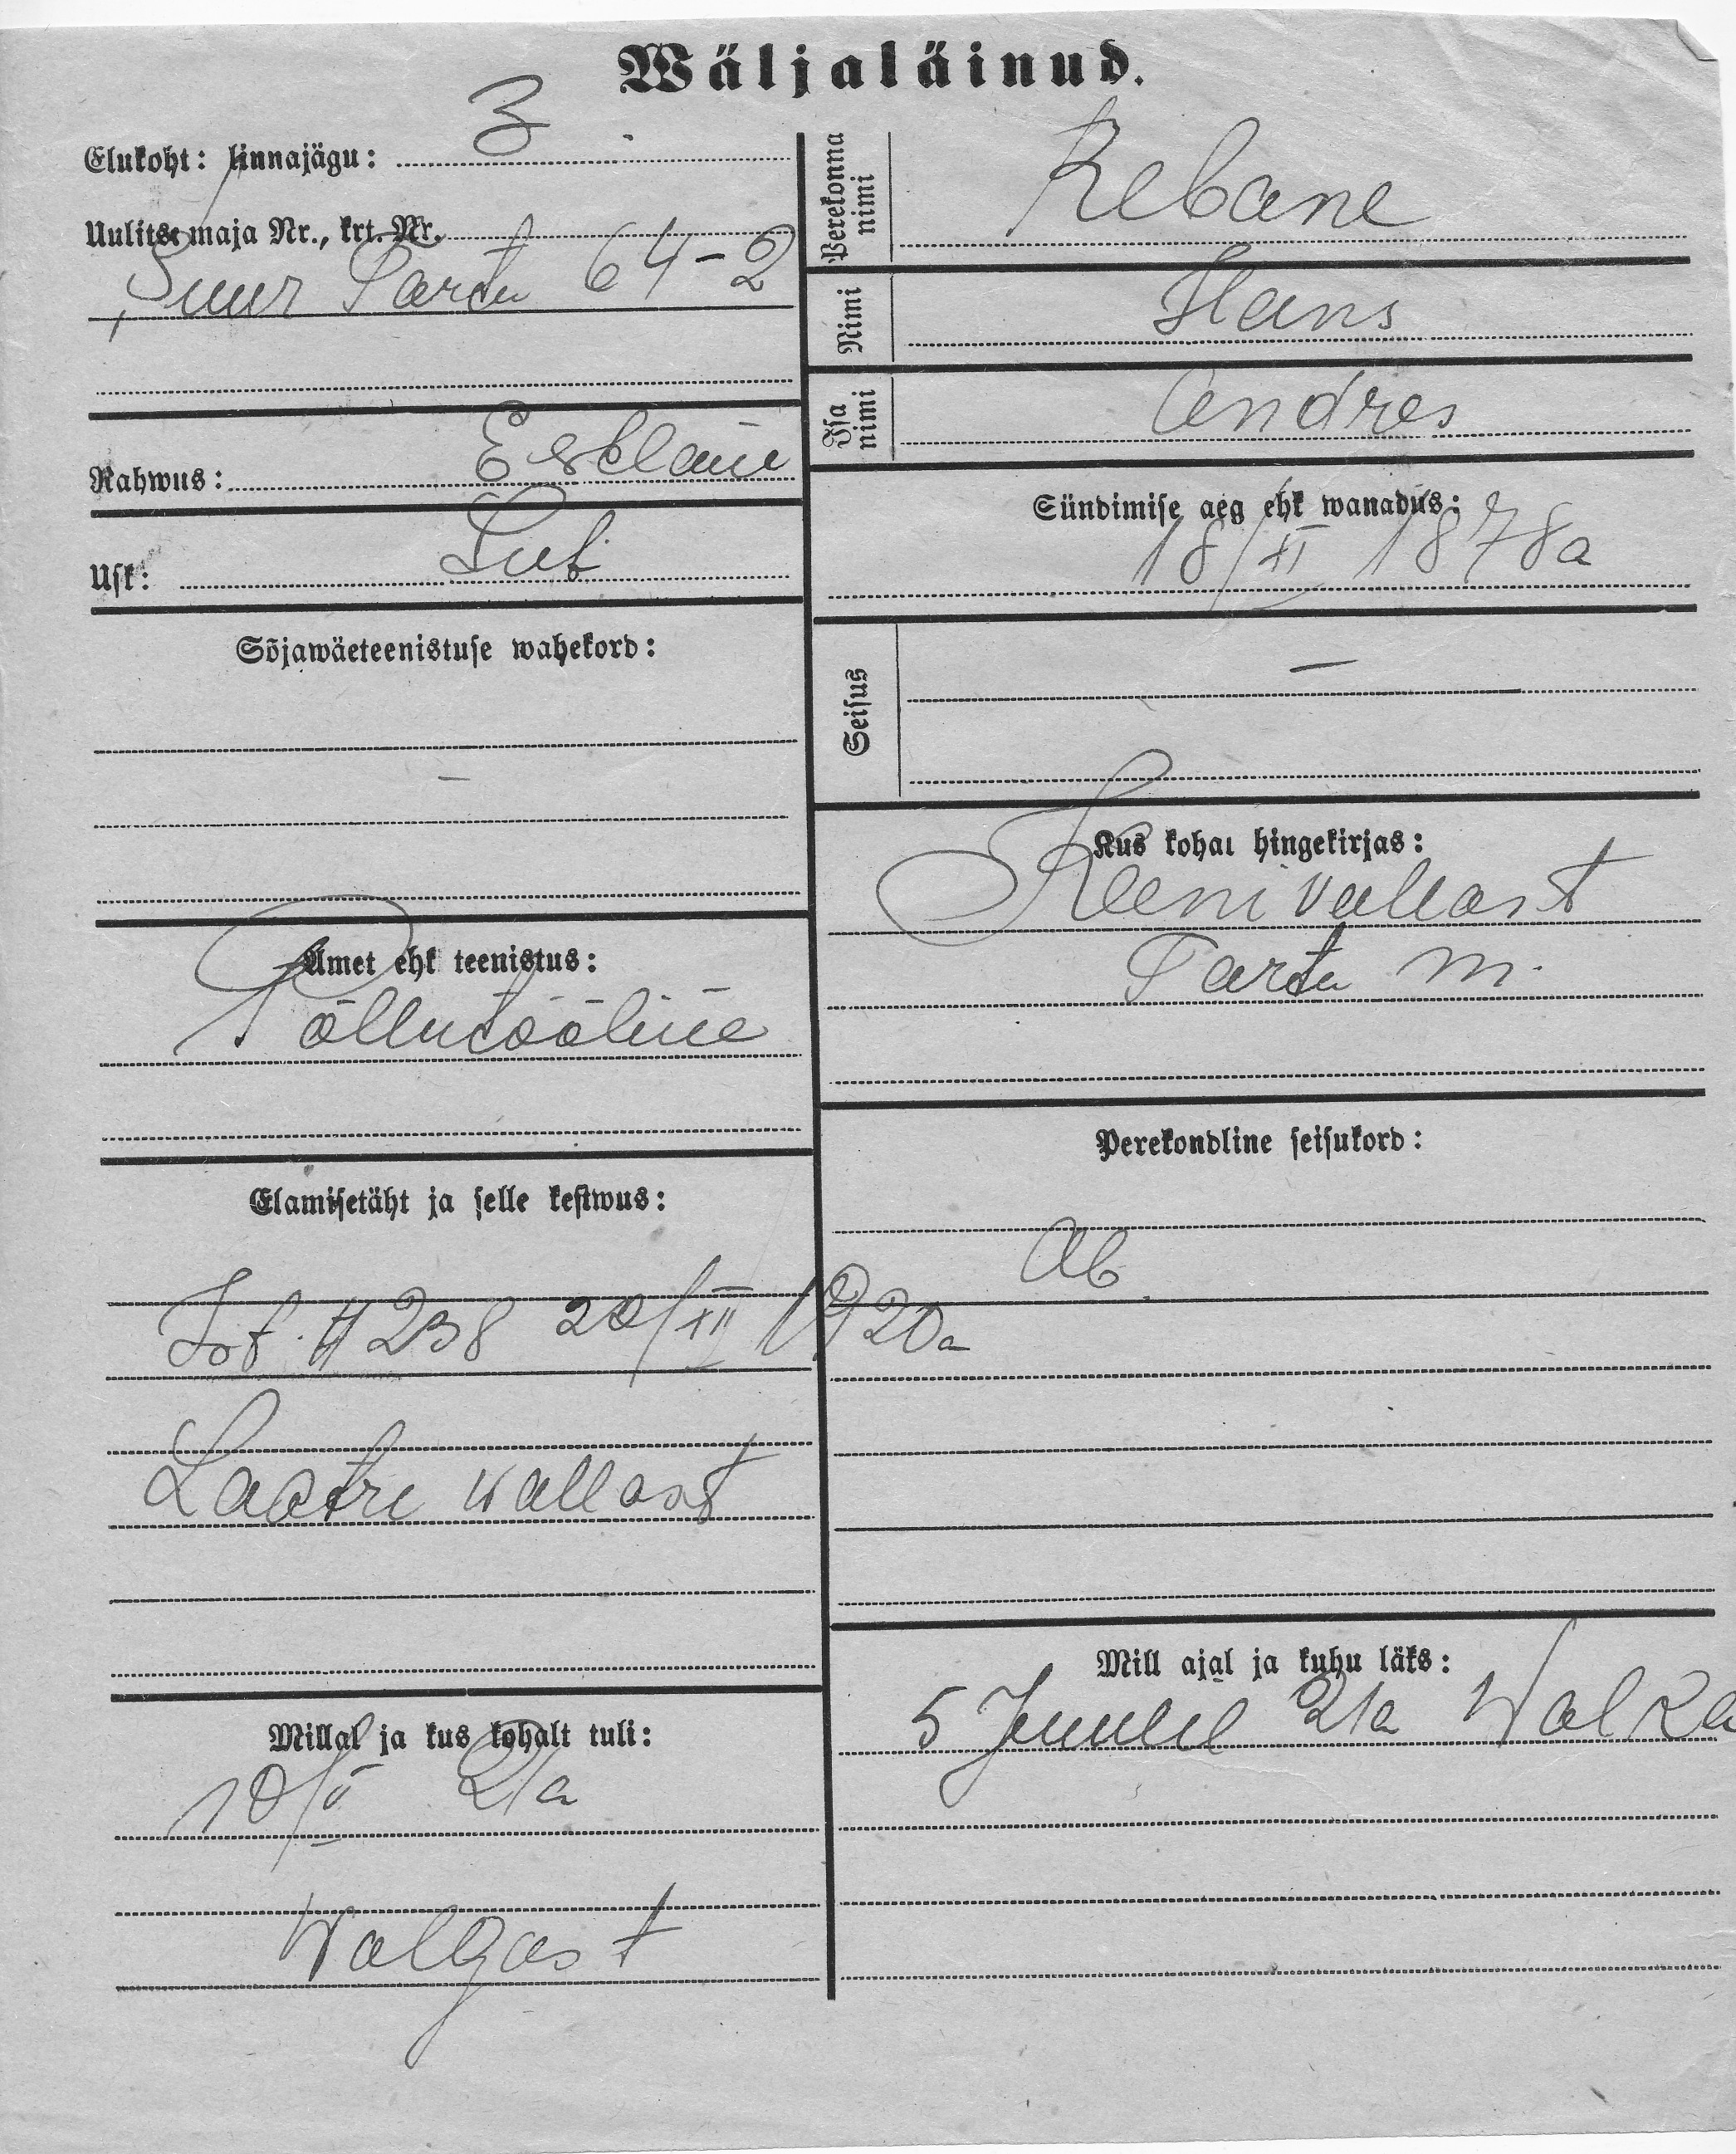 Wäljaläinud.
Elukoht: linnajägu: 3
Uulits, maja Nr., krt. Nr.
Suur Tartu 64-2
Rahwus: Eestlane
Usk: Lut
Sõjawäeteenistuse wahekord:
—
Amet ehk teenistus:
Põllutööline
Elamisetäht ja selle kestwus:
238 20/XII 1920a
Laatre wallast
Millal ja kus kohalt tuli:
10/V 21a
Walgast
Perekonna nimi
Rebane
Nimi
Hans
Isa nimi
Andres
Sündimise aeg ehk wanadus:
18/XI 1878a
Seisus
—
Kus kohal hingekirjas:
Keeni vallast
Tartu m.
Perekondline seisukord:
Ab
Mill ajal ja kuhu läks:
5 Juunil 21a Walka